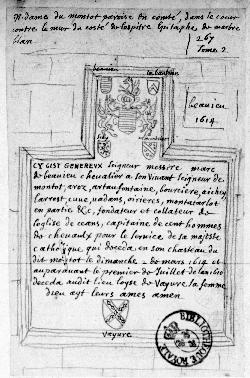 N. dame du montot paroisse en comté, dans le cœur
contre le mur du costé de l'espitre Epitaphe de marbre
blan
267
Tome 2
beauieu
la baulme
beauieu
1614
CY GIST GENEREVX seigneur messire marc
de beauieu chevalier a son vivant seigneur de
montot, aroz, artaufontaine,
en partie &c, fondateur et collateur de
l'eglise de ceans, capitaine de cent hommes
de chevaulx pour le service de sa majeste
catholique qui deceda en son chasteau du
dit montot le dimanche 2 de mars 1614 et
auparavant le premier de Juillet de lan 1610
deceda audit lieu loyse de Vayure, sa femme
dieu ayt leurs ames amen
Vayure
BIBLIOTHEQUE ROYALE